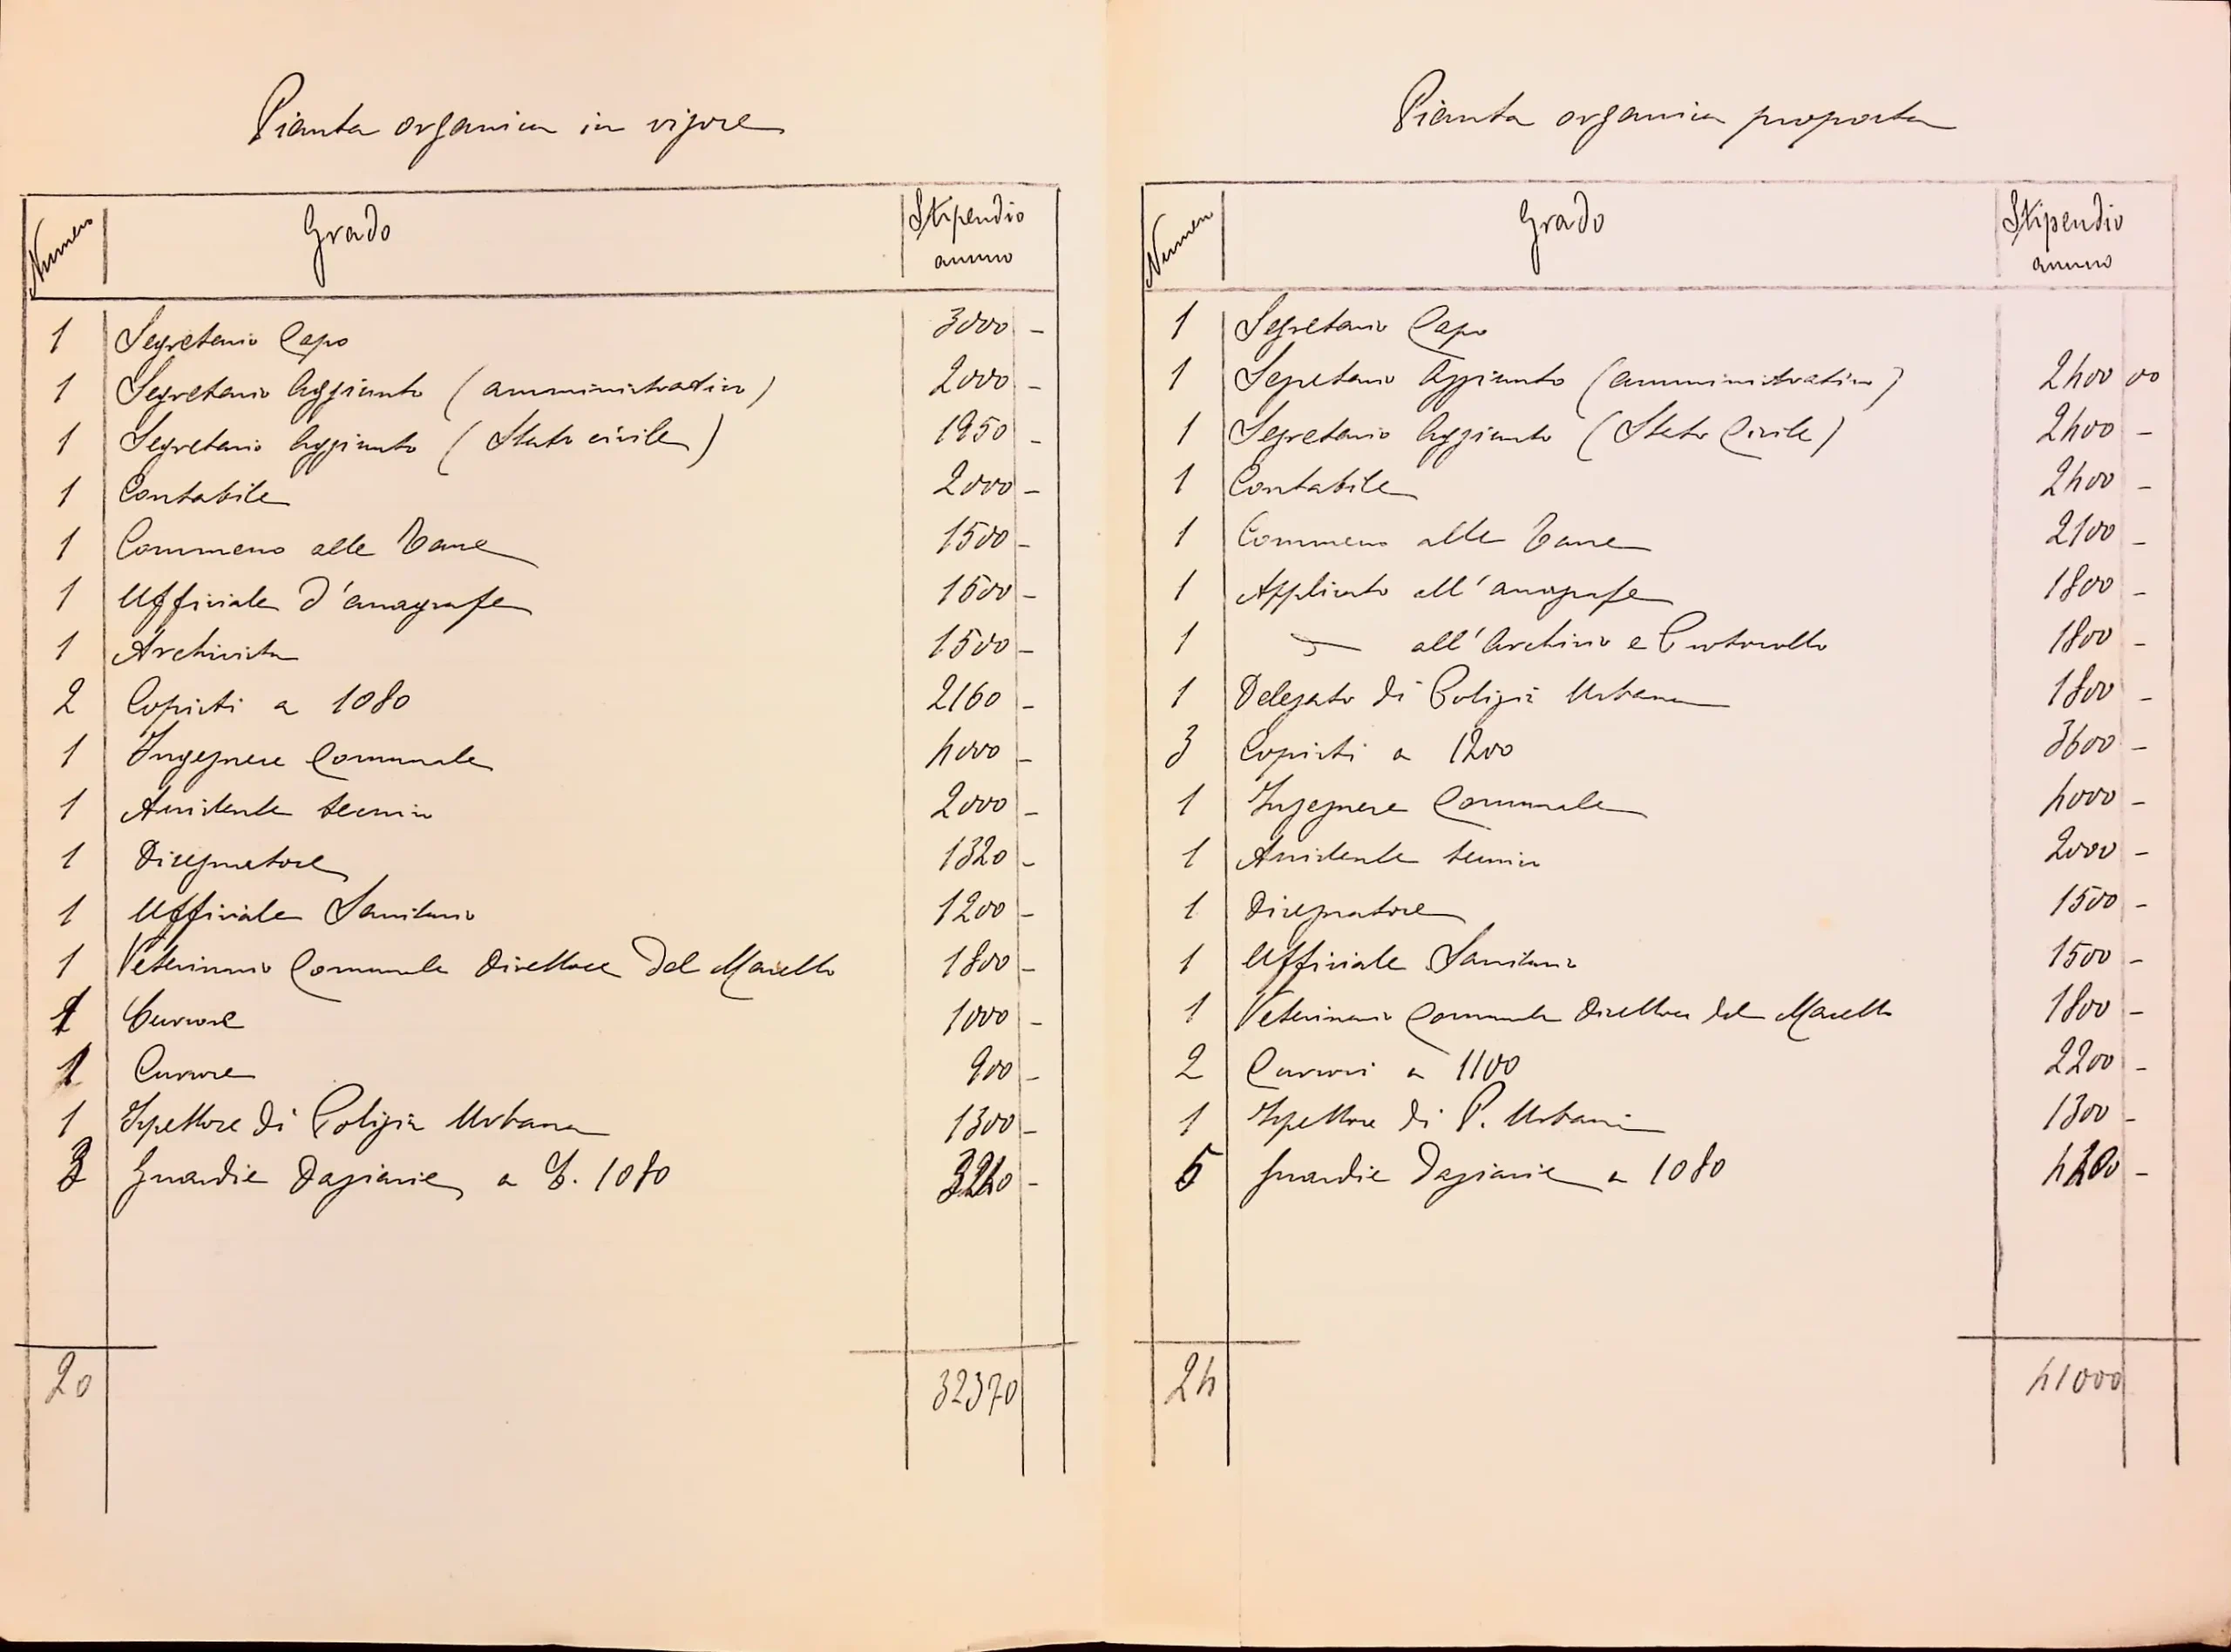 Pianta organica in vigore
Numero Grado Stipendio
annuo
1 Segretario Capo 3000 -
1 Segretario Aggiunto (amministrativo) 2000 -
1 Segretario Aggiunto (Stato civile) 1950 -
1 Contabile 2000 -
1 Commesso alle Tasse 1500 -
1 Ufficiale d'anagrafe 1500 -
1 Archivista 1500 -
2 Copisti a 1080 2160 -
1 Ingegnere Comunale 4000 -
1 Assistente tecnico 2000 -
1 Disegnatore 1320 -
1 Ufficiale Sanitario 1200 -
1 Veterinario Comunale Direttore del Macello 1800 -
1 Cursore 1000 -
1 Cursore 900 -
1 Ispettore di Polizia Urbana 1300 -
3 Guardie Daziarie a L. 1080 3240 -
20 32370
Pianta organica proposta
Numero Grado Stipendio
annuo
1 Segretario Capo
1 Segretario Aggiunto (amministrativo) 2400 00
1 Segretario Aggiunto (Stato Civile) 2400 -
1 Contabile 2400 -
1 Commesso alle Tasse 2100 -
1 Applicato all'anagrafe 1800 -
1 all'Archivio e Protocollo 1800 -
1 Delegato di Polizia Urbana 1800 -
3 Copisti a 1200 3600 -
1 Ingegnere Comunale 4000 -
1 Assistente tecnico 2000 -
1 Disegnatore 1500 -
1 Ufficiale Sanitario 1500 -
1 Veterinario Comunale Direttore del Macello 1800 -
2 Cursori a 1100 2200 -
1 Ispettore di P. Urbana 1300 -
5 Guardie Daziarie a 1080
24 41000